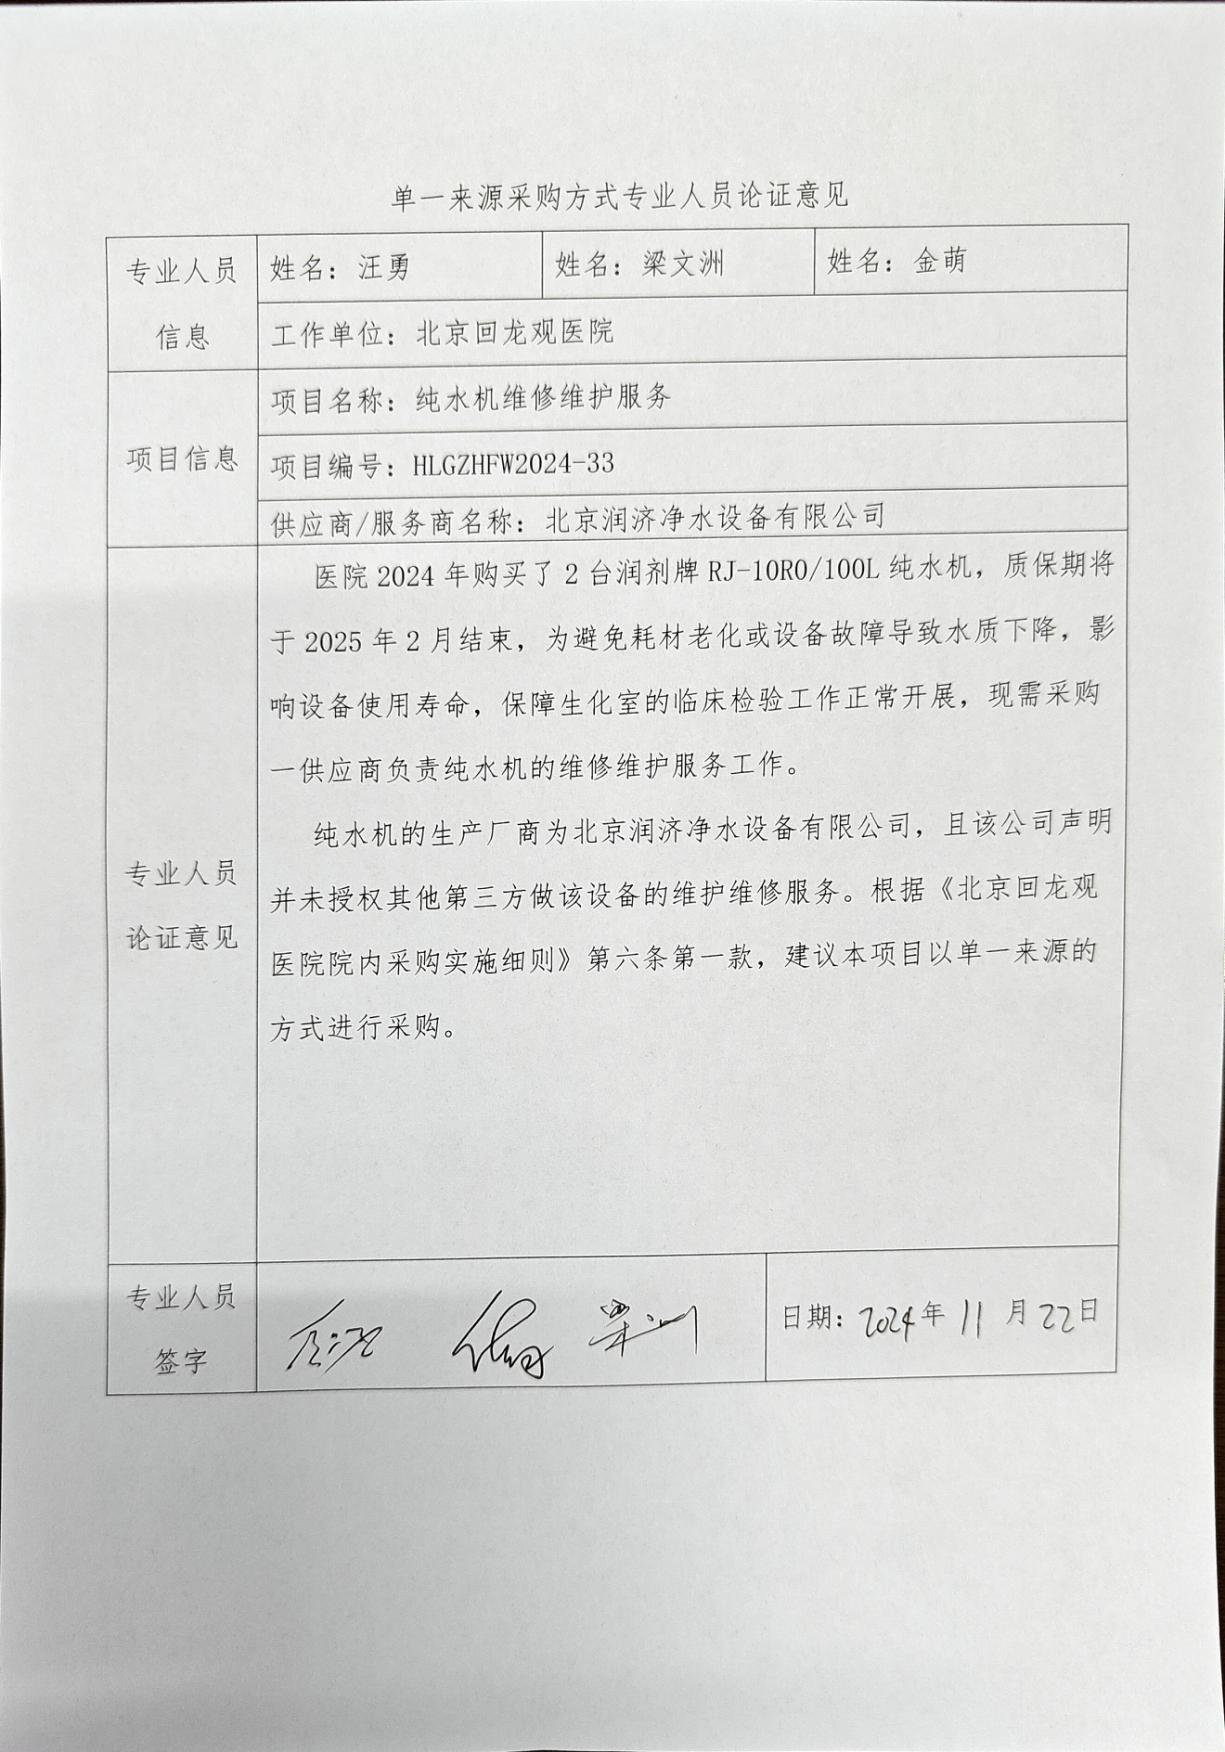 单一来源采购方式专业人员论证意见
专业人员
信息
姓名：汪勇
姓名：梁文洲
姓名：金萌
工作单位：北京回龙观医院
项目信息
项目名称：纯水机维修维护服务
项目编号：HLGZHFW2024-33
供应商/服务商名称：北京润济净水设备有限公司
专业人员
论证意见
医院 2024 年购买了 2 台润剂牌 RJ-10RO/100L 纯水机，质保期将
于 2025 年 2 月结束，为避免耗材老化或设备故障导致水质下降，影
响设备使用寿命，保障生化室的临床检验工作正常开展，现需采购
一供应商负责纯水机的维修维护服务工作。
纯水机的生产厂商为北京润济净水设备有限公司，且该公司声明
并未授权其他第三方做该设备的维护维修服务。根据《北京回龙观
医院院内采购实施细则》第六条第一款，建议本项目以单一来源的
方式进行采购。
专业人员
签字
日期：2024年 11 月 22日